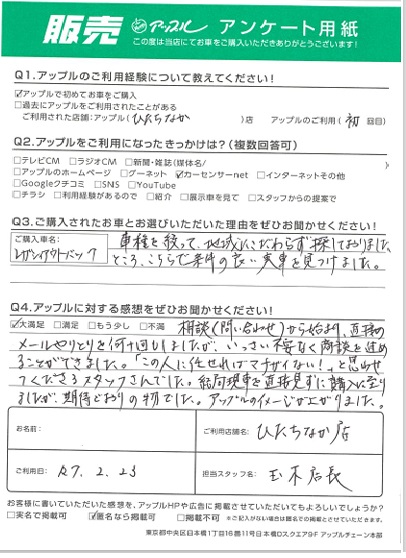 販売 アップル アンケート用紙
この度は当店にてお車をご購入いただきありがとうございます!
Q1.アップルのご利用経験について教えてください!
☑アップルで初めてお車をご購入
□過去にアップルをご利用されたことがある
ご利用された店舗:アップル( ひたちなか )店 アップルのご利用( 初 回目)
Q2.アップルをご利用になったきっかけは?(複数回答可)
□テレビCM □ラジオCM □新聞・雑誌(媒体名/ )
□アップルのホームページ □グーネット ☑カーセンサーnet □インターネットその他
□Googleクチコミ □SNS □YouTube
□チラシ □利用経験があるので □紹介 □展示車を見て □スタッフからの提案で
Q3.ご購入されたお車とお選びいただいた理由をぜひお聞かせください!
ご購入車名:
レガシィアウトバック
車種を絞って、地域にこだわらず探しておりました
ところ、こちらで条件の良い実車を見つけました。
Q4.アップルに対する感想をぜひお聞かせください!
☑大満足 □満足 □もう少し □不満 相談(問い合わせ)から始まり、直接の
メールやりとりを何十回もしましたが、いっさい不安なく商談を進め
ることができました。「この人に任せればマチガイない!」と思わせ
てくださるスタッフさんでした。結局現車を直接見ずに購入に至り
ましたが、期待どおりの物でした。アップルのイメージが上がりました。
お名前:
ご利用店舗名:
ひたちなか店
ご利用日:
R7.2.23
担当スタッフ名:
玉木店長
お客様に書いていただいた感想を、アップルHPや広告に掲載させていただいてもよろしいでしょうか?
□実名で掲載可 ☑匿名なら掲載可 □掲載不可 ※ご記入がない場合は匿名での掲載とさせていただきます。
東京都中央区日本橋1丁目16番11号日本橋Dスクエア9F アップルチェーン本部